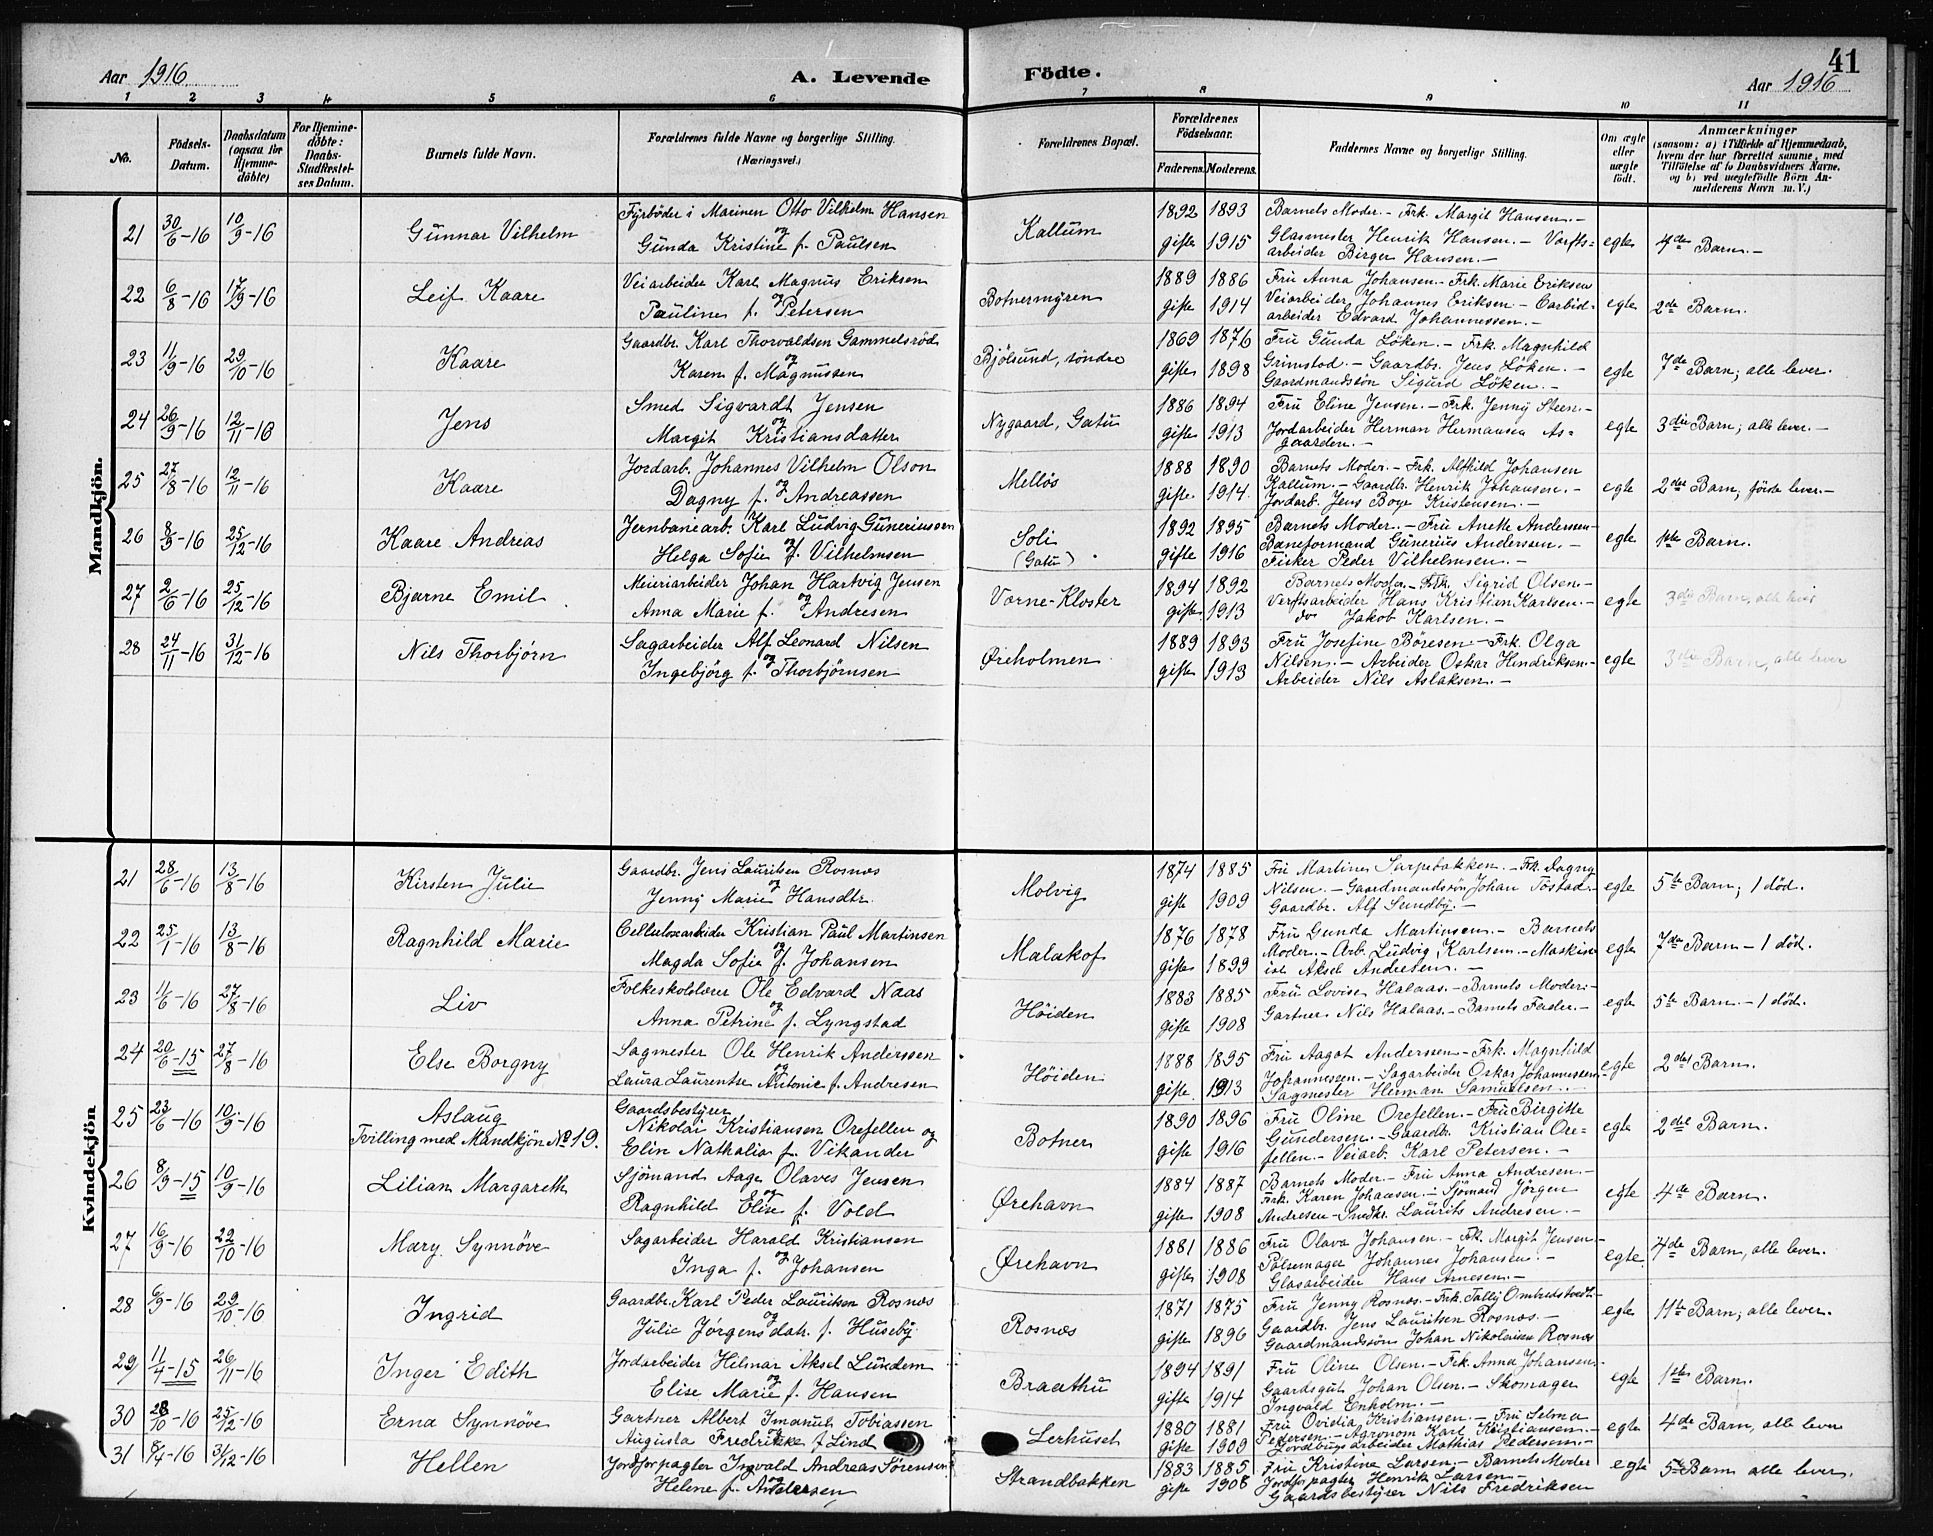 41
Aar 1916
A. Levende Födte.
Aar 1916
1 2 3 4 5 6 7 8 9 10 11
No.
Födsels-Datum.
Daabsdatum (ogsaa for Hjemme-döbte)
For Hjemme-döbte: Daabs-Stadfæstel-ses Datum.
Barnets fulde Navn.
Forældrenes fulde Navne og borgerlige Stilling.
(Næringsvei.)
Forældrenes Bopæl.
Forældrenes Födselsaar.
Faderens. Moderens.
Faddernes Navne og borgerlige Stilling.
Om ægte eller uægte født.
Anmærkninger
(saasom: a) i Tilfælde af Hjemmedaab, hvem der har forrettet samme, med Tilföielse af to Daabsvidners Navne, og b) ved uægtefödte Börn An-melderens Navn m. V.)
Mandkjön.
21 30/6-16 10/9-16 Gunnar Vilhelm Fyrböder i Marinen Otto Vilhelm Hansen og Gunda Kristine f. Paulsen Kallum 1892 1893 gifte 1915 Barnets Moder.- Frk. Margit Hansen.-
Glasmester Henrik Hansen.- Værfts=
arbeider Birger Hansen.- egte 4de Barn.-
22 6/8-16 17/9-16 Leif Kaare Veiarbeider Karl Magnus Eriksen og Pauline f. Petersen Botnermyren 1889 1886 gifte 1914 Fru Anna Johansen.- Frk. Marie Eriksen
Veiarbeider Johannes Eriksen - Carbid-
arbeider Edvard Johannessen.- egte 2de Barn.
23 11/9-16 29/10-16 Kaare Gaardbr. Karl Thorvaldsen Gammelsröd og Karen f. Magnussen Bjölsund, söndre 1869 1876 gifte 1898 Fru Gunda Löken.- Frk. Magnhild
Grimstad - Gaardbr. Jens Löken.-
Gaardmandssön Sigurd Löken.- egte 7de Barn; alle lever.
24 26/9-16 12/11-16 Jens Smed Sigvardt Jensen og Margit Kristiansdatter Nygaard, Gatu 1886 1894 gifte 1913 Fru Eline Jensen.- Frk. Jenny Steen.-
Jordarbeider Herman Hermansen As=
gaarden.- egte 3die Barn; alle lever.-
25 27/8-16 12/11-16 Kaare Jordarb. Johannes Vilhelm Olson og Dagny f. Andreassen Mellös 1888 1890 gifte 1914 Barnets Moder.- Frk. Alfhild Johansen
Kallum.- Gaardbr. Henrik Johansen.-
Jordarb. Jens Boye Kristensen.- egte 2det Barn, förste lever.-
26 8/9-16 25/12-16 Kaare Andreas Jernbanearb. Karl Ludvig Guneriussen og Helga Sofie f. Vilhelmsen Soli (Gatu) 1892 1895 gifte 1916 Barnets Moder.- Fru Anette Anderssen
Baneformand Gunerius Anderssen.-
Fisker Peder Vilhelmsen.- egte 1ste Barn.
27 2/6-16 25/12-16 Bjarne Emil Meieriarbeider Johan Hartvig Jensen og Anna Marie f. Andresen Værne-Kloster 1894 1892 gifte 1913 Barnets Moder.- Frk. Sigrid Olsen.-
Verftsarbeider Hans Kristian Karlsen.-
do Jakob Karlsen.- egte 3die Barn, alle lever
28 24/11-16 31/12-16 Nils Thorbjörn Sagarbeider Alf Leonard Nilsen og Ingebjörg f. Thorbjörnsen Øreholmen 1889 1893 gifte 1913 Fru Josefine Böresen - Frk. Olga
Nilsen.- Arbeider Oskar Hendriksen.-
Arbeider Nils Aslaksen.- egte 3die Barn, alle lever
Kvindekjön
21 28/6-16 13/8-16 Kirsten Julie Gaardbr. Jens Lauritsen Rosnæs og Jenny Marie Hansdtr. Molvig 1874 1885 gifte 1909 Fru Martine Sarpebakken.- Frk. Dagny
Nilsen.- Gaardmandssön Johan Tostad.-
Gaardbr. Alf Sundby.- egte 5te Barn; 1 död.
22 25/1-16 13/8-16 Ragnhild Marie Cellulosearbeider Kristian Paul Martinsen og Magda Sofie f. Johansen Malakof 1876 1878 gifte 1899 Fru Gunda Martinsen.- Barnets
Moder.- Arb. Ludvig Karlsen.- Maskin=
ist Aksel Andresen.- egte 7de Barn - 1 död.
23 11/6-16 27/8-16 Liv Folkeskolelærer Ole Edvard Naas og Anna Petrine f. Lyngstad Höiden 1883 1885 gifte 1908 Fru Lovise Halaas.- Barnets Moder.-
Gartner Nils Halaas.- Barnets Fader.- egte 5te Barn - 1 död.
24 20/6-15 27/8-16 Else Borgny Sagmester Ole Henrik Anderssen og Laura Laurentse Antonie f. Andresen Höiden 1888 1895 gifte 1913 Fru Aagot Anderssen - Frk. Magnhild
Johannessen.- Sagarbeider Oskar Johannessen.-
Sagmester Herman Samuelsen.- egte 2det Barn.
25 23/6-16 10/9-16 Aslaug
Tvilling med Mandkjön No 19. Gaardsbestyrer Nikolai Kristiansen Orefellen og Elin Nathalia f. Vikander Botner 1890 1896 gifte 1916 Fru Oline Orefellen.- Fru Birgitte
Gundersen.- Gaardbr. Kristian Ore=
fellen.- Veiarb. Karl Petersen.- egte 2det Barn.
26 8/9-15 10/9-16 Lilian Margareth Sjömand Aage Olaves Jensen og Ragnhild Elise f. Vold Ørehavn 1884 1887 gifte 1908 Barnets Moder - Fru Anna Andresen.-
Frk. Karen Johansen.- Sjömand Jörgen
Andresen - Smedkr. Laurits Andresen.- egte 4de Barn.
27 16/9-16 22/10-16 Mary Synnöve Sagarbeider Harald Kristiansen og Inga f. Johansen Ørehavn 1881 1886 gifte 1908 Fru Olava Johansen.- Frk. Margit Jensen-
Pölsemager Johannes Johansen.-
Glasarbeider Hans Arnesen.- egte 4de Barn, alle lever.
28 6/9-16 29/10-16 Ingrid Gaardbr. Karl Peder Lauritsen Rosnæs og Julie Jörgensdatt. f. Huseby Rosnæs 1871 1875 gifte 1896 Fru Jenny Rosnæs.- Frk. Tally Ombredstvedt.
Gaardbr. Jens Lauritsen Rosnæs.-
Gaardmandssön Johan Nikolaisen Rosnæs egte 11te Barn; alle lever.
29 11/4-15 26/11-16 Inger Edith Jordarbeider Hilmar Aksel Lundem og Elise Marie f. Hansen Braathu 1894 1891 gifte 1914 Fru Oline Olsen.- Frk. Anna Johansen.-
Gaardsgut Johan Olsen.- Skomager
Ingvald Enholm.- egte 1ste Barn.
30 28/10-16 25/12-16 Erna Synnöve Gartner Albert Imanuel Tobiassen og Augusta Fredrikke f. Lind Lerhuset 1880 1881 gifte 1909 Fru Ovidia Kristiansen.- Fru Selma
Pedersen.- Agronom Karl Kristiansen.-
Jordbrugsarbeider Mathias Pedersen.- egte 4de Barn, alle lever
31 8/4-16 31/12-16 Hellen Jordforpagter Ingvald Andreas Sörensen og Helene f. Andersen Strandbakken 1883 1885 gifte 1908 Fru Kristine Larsen.- Barnets Moder
Jordforpagter Henrik Larsen.-
Gaardsbestyrer Nils Fredriksen egte 5te Barn alle lever.